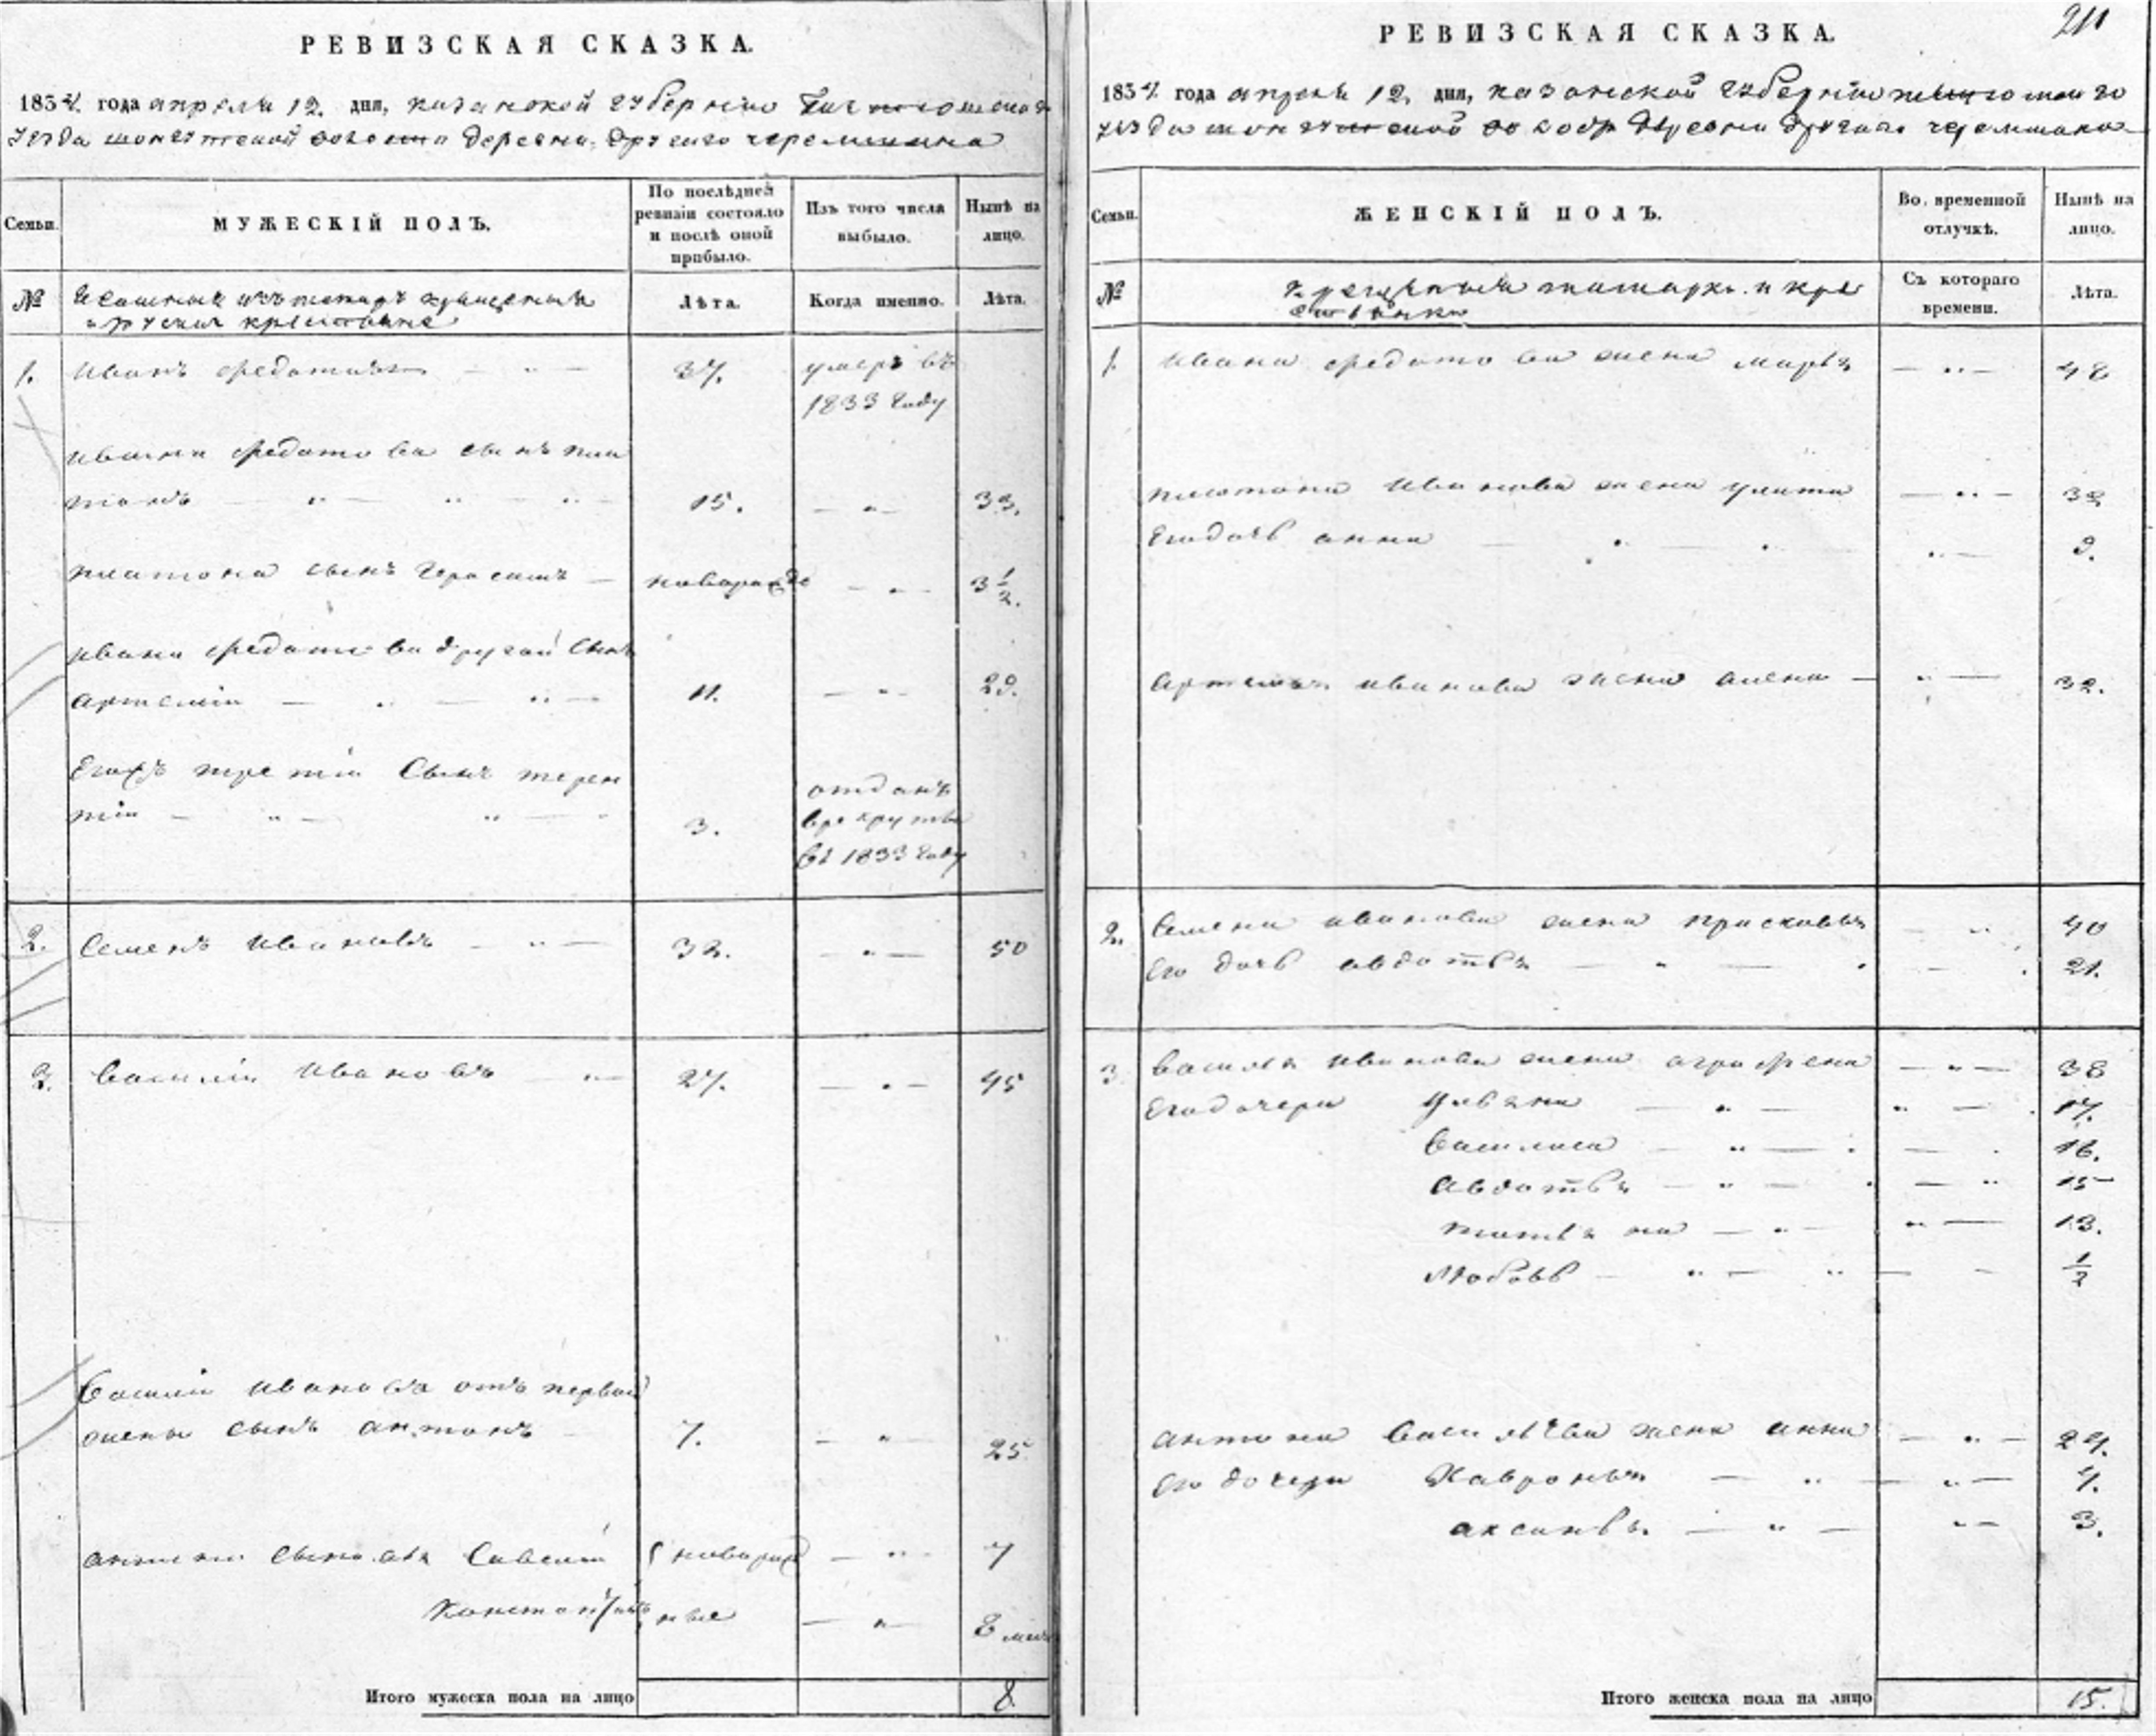 РЕВИЗСКАЯ СКАЗКА.
1834. года апреля 12. дня, казанской губернiи
уезда волости деревни.
Семьи.
МУЖЕСКIЙ ПОЛЪ.
По послѣдней ревизiи состояло и послѣ оной прибыло.
Изъ того числа выбыло.
Нынѣ на лицо.
№
крещеныя
крестьяне
Лѣта.
Когда именно.
Лѣта.
1. Иванъ федотовъ 37. умеръ въ
1833 году
ивана федотова сынъ пла
тонъ 15. 33.
платона сынъ Герасимъ новорожде 3 1/2.
ивана федотова другой Сынъ
артемiи 11. 29.
Егожъ третiи Сынъ терен
тiи 3. отданъ
врекруты
въ 1833 году
2. Семенъ Ивановъ 32. 50
3. Василiи Ивановъ 27. 45
Василiи Иванова отъ первой
жены сынъ антонъ 7. 25
антона сыновья Савелiи новорож 7
Константинъ ные 8 меся
Итого мужеска пола на лицо 8.
РЕВИЗСКАЯ СКАЗКА.
211
1834. года апреля 12. дня, казанской губернiи
уезда деревни
Семьи.
ЖЕНСКIЙ ПОЛЪ.
Во. временной отлучкѣ.
Нынѣ на лицо.
№
крещеныя татарки и кре
стьянки
Съ котораго времени.
Лѣта.
1. Ивана федотова жена марья 48
платона Иванова жена улита 32
Егодочь анна 9.
артемья иванова жена алена 32.
2. Семена иванова жена прасковья 40
Его дочь авдотья 21.
3 Василья Иванова жена аграфена 38
Егодочери Ульяна 17.
Василиса 16.
Авдотья 15
татьяна 13.
Любовь 1/2
антона Васильева жена анна 24.
Его дочери Хавронья 7.
аксинья 3.
Итого женска пола на лицо 15.